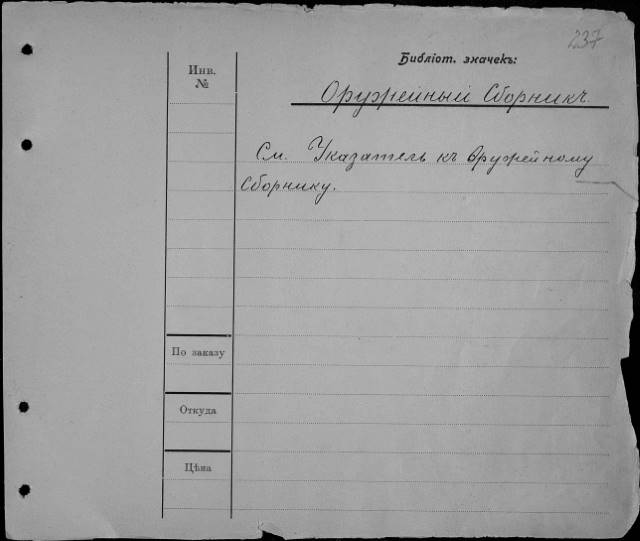 237
Библіот. значекъ:
Инв.
№
Оружейный Сборникъ.
См. Указатель къ Оружейному
Сборнику.
По заказу
Откуда
Цѣна